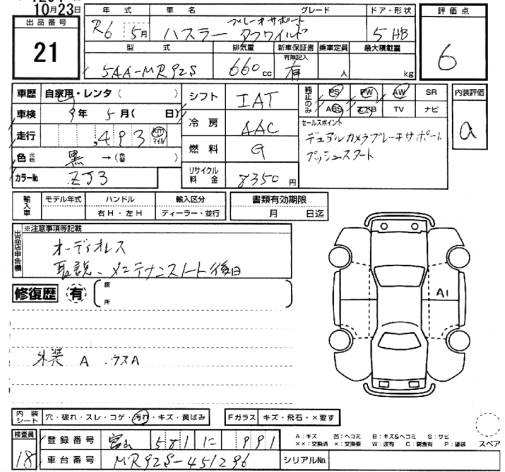 10月23日
出品番号 21
年式 車名 グレード ドア・形状 評価点
R6 5月 ハスラー タフワイルド ブレーキサポート 5 HB 6
型式 排気量 新車保証書 有限記入 乗車定員 最大積載量
5AA-MR92S 660cc 有 人 kg
車歴 自家用・レンタ( )
車検 9年 5月( 日)
走行 ,493 km マイル
色 黒 →( )
カラーNo ZJ3
シフト IAT
冷房 AAC
燃料 G
リサイクル料金 8350円
純正のみ PS PW AW SR
ABS エアB TV ナビ
内装評価 a
セールスポイント
デュアルカメラブレーキサポート
プッシュスタート
輸入車 モデル年式 ハンドル 輸入区分
右H・左H ディーラー・並行
書類有効期限
月 日迄
出品店申告欄
※注意事項等記載
オーディオレス
取説、メンテナンスノート後日
修復歴 有 箇所
A1
外装 A .ウスA
内装シート 穴・破れ・スレ・コゲ・汚れ・キズ・黄ばみ
Fガラス キズ・飛石・×要す
検査員 18
登録番号 富山 581 に 991
車台番号 MR92S-451296
シリアルNo.
A：キズ U：凹ヘコミ B：キズ&ヘコミ S：サビ
××：交換済 ×：交換要 W：波有 C：腐食有 P：塗装
スペア